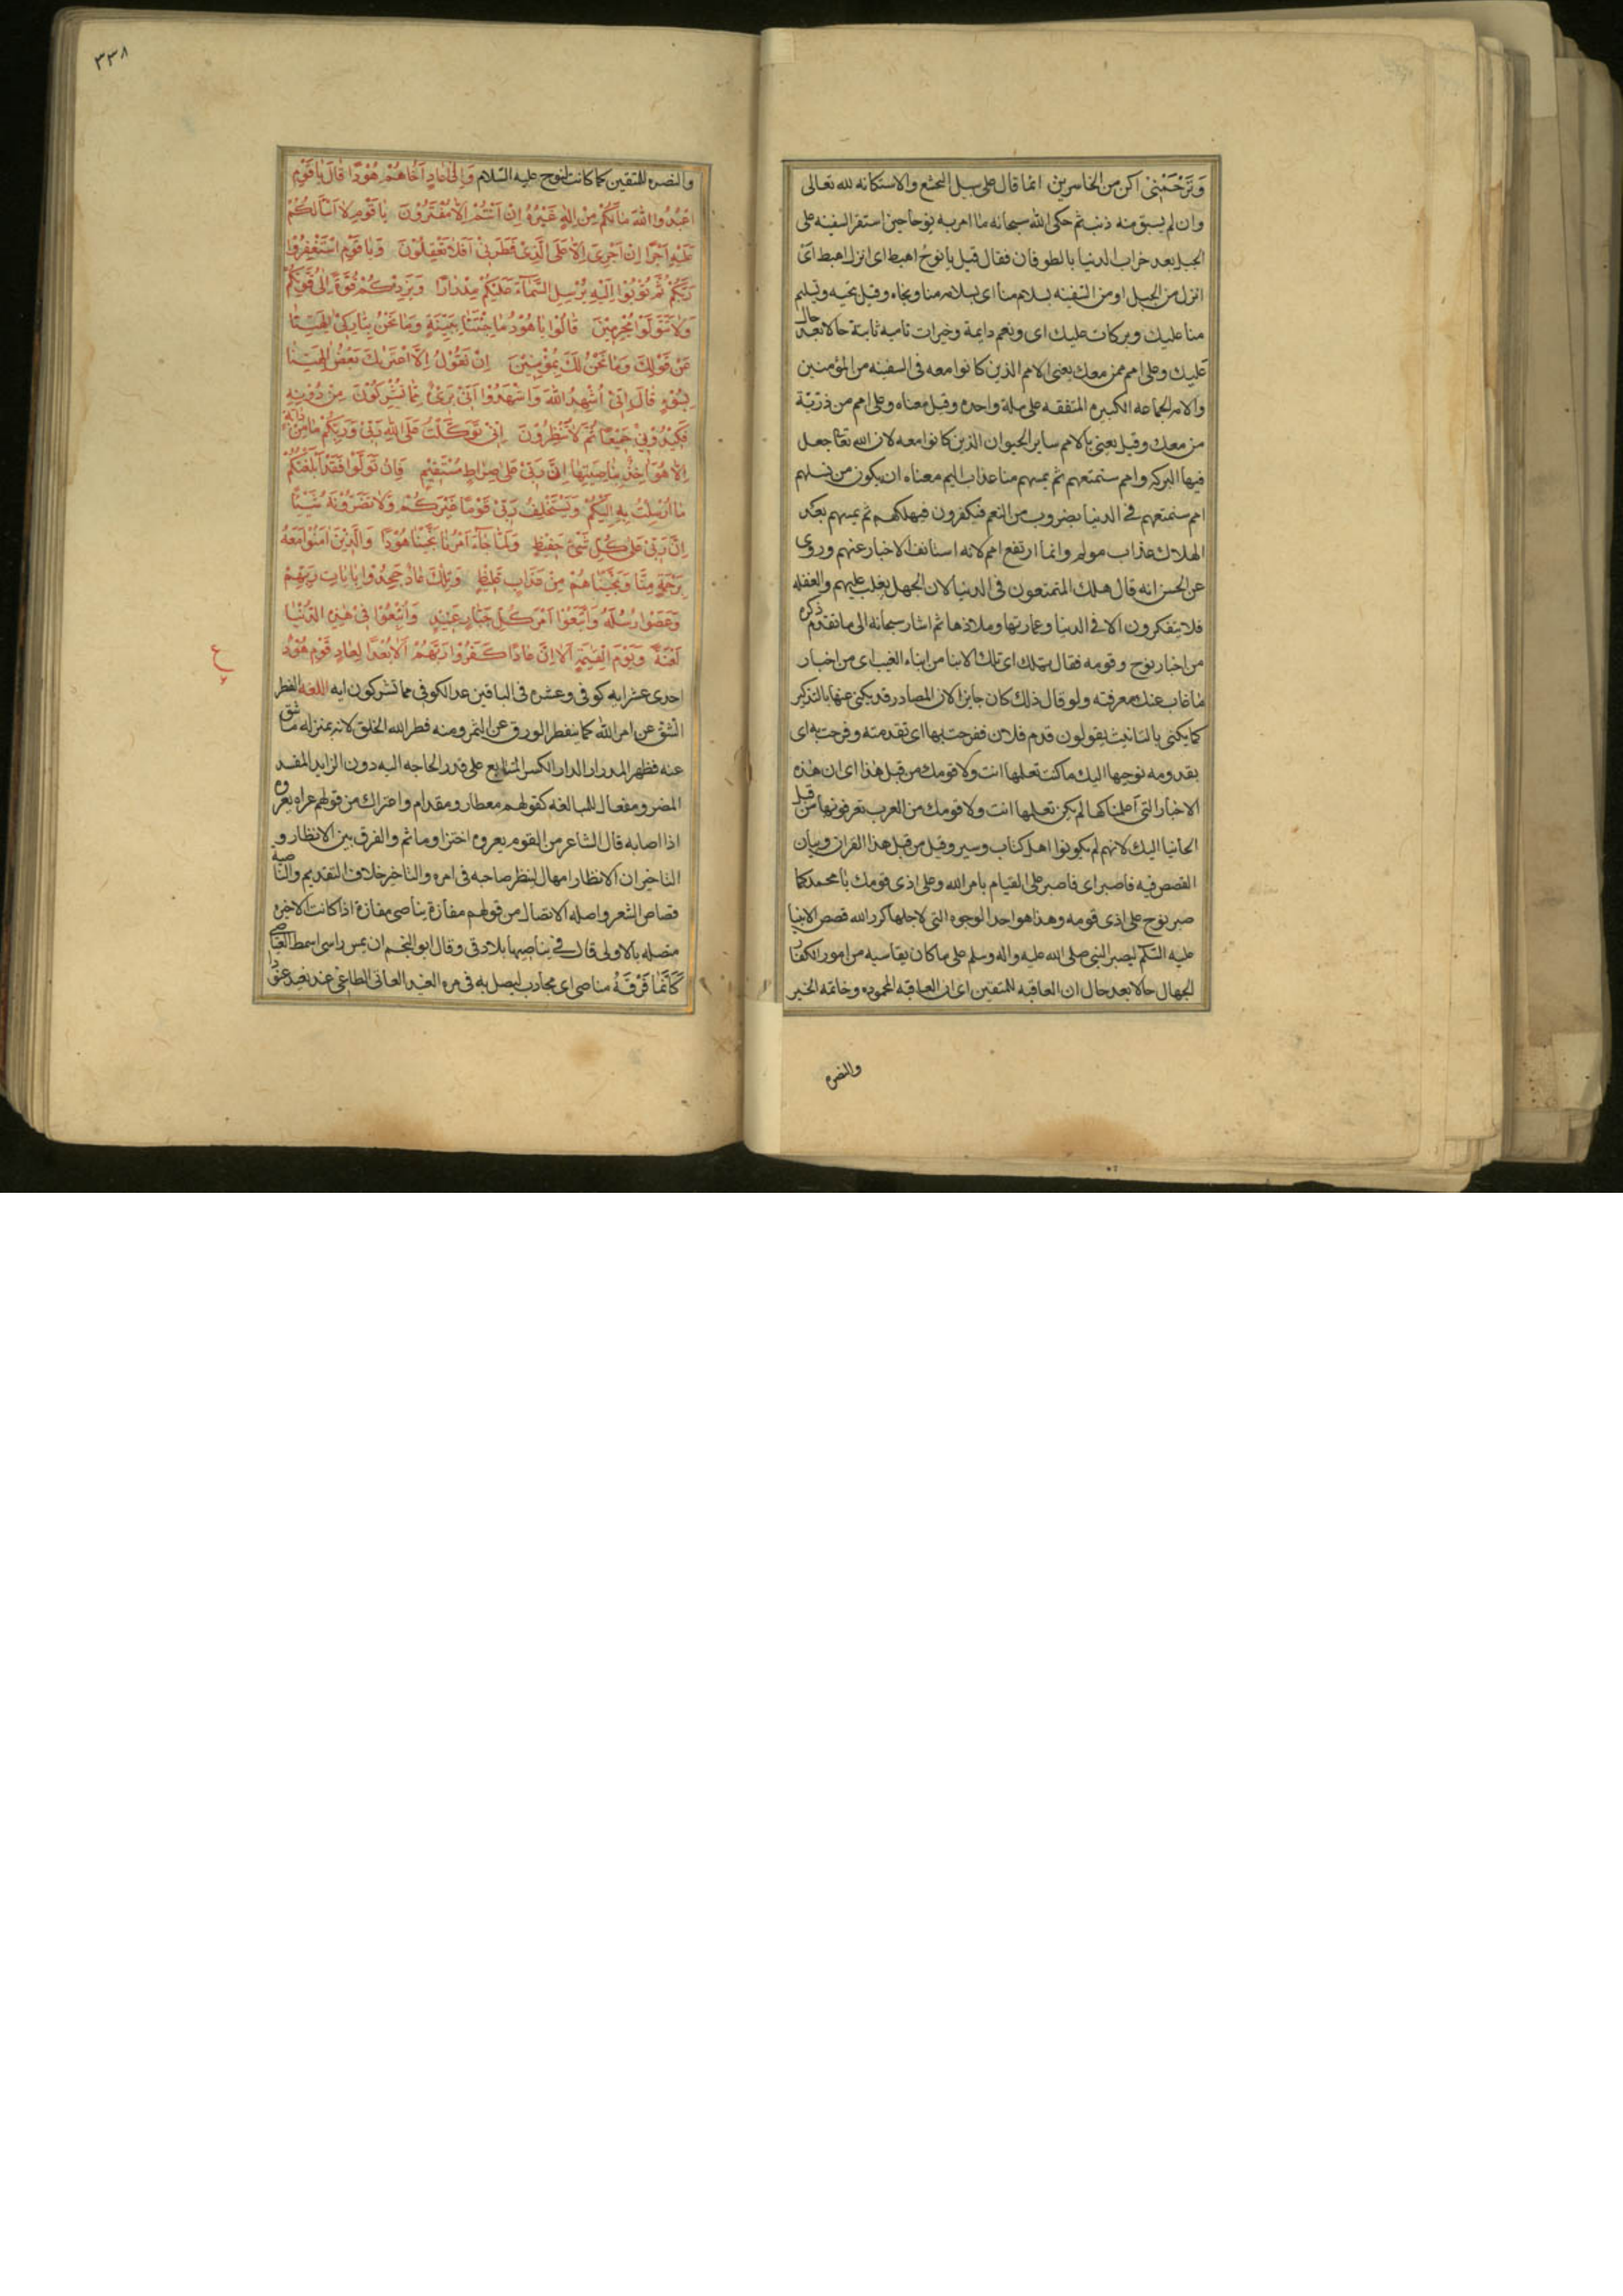 وَتَرْحَمْنِیْ اکن من الخاسرین انما قال علی سبیل التخشع والاستکانه لله تعالی
وان لم یسبق منه ذنب ثم حکی الله سبحانه ما امر به نوحا حین استقر السفینه علی
الجبل بعد خراب الدنیا بالطوفان فقال قیل یا نوحُ اهبط ای انزل اهبط ای
انزل من الجبل او من السفینه بسلام منا ای بسلامه منا ونجاه وقیل تحیه وتسلیم
منا علیك وبرکات علیك ای ونعم دایمة وخیرات نامیه ثابتة حالا بعد حال
علیك وعلی امم ممن معك یعنی الامم الذین کانوا معه فی السفینه من المؤمنین
والامم الجماعه الکبیره المتفقه علی ملة واحده وقیل معناه وعلی امم من ذریّة
من معك وقیل یعنی بالامم سایر الحیوان الذین کانوا معه لان الله تعا جعل
فیها البرکه وامم سنمتعهم ثم یمسهم منا عذاب الیم معناه ان یکون من نسلهم
امم سنمتعهم فی الدنیا بضروب من النعم فیکفرون فیهلکهم ثم یمسهم بعد
الهلاك عذاب مولم وانما ارتفع امم لانه استانف الاخبار عنهم وروی
عن الحسن انه قال هلك المتمتعون فی الدنیا لان الجهل یغلب علیهم والغفله
فلا یتفکرون الا فی الدنیا وعمارتها وملاذها ثم اشار سبحانه الی ما تقدم ذکره
من اخبار نوح وقومه فقال تلك ای تلك الانبا من انباء الغیب ای من اخبار
ما غاب عنك معرفته ولو قال ذلك کان جایزا لان المصادر قد یکنی عنها بالتذکیر
کما یکنی بالتانیث یقولون قدم فلان ففرحت بها ای تقدمته وفرحت به ای
بقدومه نوحیها الیك ما کنت تعلمها انت ولا قومك من قبل هٰذا ای ان هٰذه
الاخبار التی اعلمناکها لم یکن تعلمها انت ولا قومك من العرب تعرفونها من قبل
ایحائنا الیك لانهم لم یکونوا اهل کتاب وسیر وقیل من قبل هذا القران وبیان
القصص فیه فاصبر ای فاصبر علی القیام بامر الله وعلی اذی قومك یا محمد کما
صبر نوح علی اذی قومه وهذا هو احد الوجوه التی لاجلها کرر الله قصص الانبیا
علیه السّلم لیصبر النبی صلی الله علیه واله وسلم علی ما کان یقاسیه من امور الکفار
الجهال حالا بعد حال ان العاقبه للمتقین ای ان العاقبه المحموده وخاتمه الخیر
والنصره
٣٣٨
والنصره للمتقین کما کانت لنوح علیه السّلام وَاِلیٰ عَادٍ اَخَاهُمْ هُوْدًا قَالَ یَا قَوْمِ
اعْبُدُوا اللهَ مَا لَکُمْ مِنْ اِلٰهٍ غَیْرُهُ اِنْ اَنْتُمْ اِلَّا مُفْتَرُوْنَ یَا قَوْمِ لَا اَسْاَلُکُمْ
عَلَیْهِ اَجْرًا اِنْ اَجْرِیَ اِلَّا عَلَی الَّذِیْ فَطَرَنِیْ اَفَلَا تَعْقِلُوْنَ وَیَا قَوْمِ اسْتَغْفِرُوْا
رَبَّکُمْ ثُمَّ تُوْبُوْا اِلَیْهِ یُرْسِلِ السَّمَآءَ عَلَیْکُمْ مِدْرَارًا وَیَزِدْکُمْ قُوَّةً اِلیٰ قُوَّتِکُمْ
وَلَا تَتَوَلَّوْا مُجْرِمِیْنَ قَالُوْا یَا هُوْدُ مَا جِئْتَنَا بِبَیِّنَةٍ وَمَا نَحْنُ بِتَارِکِیْ اٰلِهَتِنَا
عَنْ قَوْلِكَ وَمَا نَحْنُ لَكَ بِمُؤْمِنِیْنَ اِنْ نَقُوْلُ اِلَّا اعْتَرٰیكَ بَعْضُ اٰلِهَتِنَا
بِسُوْءٍ قَالَ اِنِّیْ اُشْهِدُ اللهَ وَاشْهَدُوْا اَنِّیْ بَرِیْءٌ مِمَّا تُشْرِکُوْنَ مِنْ دُوْنِهِ
فَکِیْدُوْنِیْ جَمِیْعًا ثُمَّ لَا تُنْظِرُوْنَ اِنِّیْ تَوَکَّلْتُ عَلَی اللهِ رَبِّیْ وَرَبِّکُمْ مَا مِنْ دَابَّةٍ
اِلَّا هُوَ اٰخِذٌ بِنَاصِیَتِهَا اِنَّ رَبِّیْ عَلیٰ صِرَاطٍ مُسْتَقِیْمٍ فَاِنْ تَوَلَّوْا فَقَدْ اَبْلَغْتُکُمْ
مَا اُرْسِلْتُ بِهِ اِلَیْکُمْ وَیَسْتَخْلِفُ رَبِّیْ قَوْمًا غَیْرَکُمْ وَلَا تَضُرُّوْنَهُ شَیْئًا
اِنَّ رَبِّیْ عَلیٰ کُلِّ شَیْءٍ حَفِیْظٌ وَلَمَّا جَآءَ اَمْرُنَا نَجَّیْنَا هُوْدًا وَالَّذِیْنَ اٰمَنُوْا مَعَهُ
بِرَحْمَةٍ مِنَّا وَنَجَّیْنَاهُمْ مِنْ عَذَابٍ غَلِیْظٍ وَتِلْكَ عَادٌ جَحَدُوْا بِاٰیَاتِ رَبِّهِمْ
وَعَصَوْا رُسُلَهُ وَاتَّبَعُوْا اَمْرَ کُلِّ جَبَّارٍ عَنِیْدٍ وَاُتْبِعُوْا فِیْ هٰذِهِ الدُّنْیَا
لَعْنَةً وَیَوْمَ الْقِیٰمَةِ اَلَا اِنَّ عَادًا کَفَرُوْا رَبَّهُمْ اَلَا بُعْدًا لِعَادٍ قَوْمِ هُوْدٍ
ع
احدی عشر ایه کوفی وعشره فی الباقین عد الکوفی مما تشرکون ایه اللغه الفطر
الشق عن امر الله کما ینفطر الورق عن الثمر ومنه فطر الله الخلق لانه بمنزله ما شق
عنه فظهر المدرار الدار الکثیر المتتابع علی قدر الحاجه الیه دون الزاید المفسد
المضر ومفعال للمبالغه کقولهم معطار ومقدام واعتراك من قولهم عراه یعروه
اذا اصابه قال الشاعر من القوم یعروه اجترا وماثم والفرق بین الانظار و
التاخیر ان الانظار امهال لینظر صاحبه فی امره والتاخیر خلاف التقدیم والناصیة
قصاص الشعر واصله الاتصال من قولهم مفازة یناصی مفازة اذا کانت الاخیره
متصله بالاولی قال فی یناصیها بلاد قی وقال ابو النجم ان یمس راسی اشمط العناصی
کَاَنَّمَا فَرَّقَهُ مناصی ای مجاذب لیصل به فی مره العنید العاتی الطاغی عند یعند عنودا